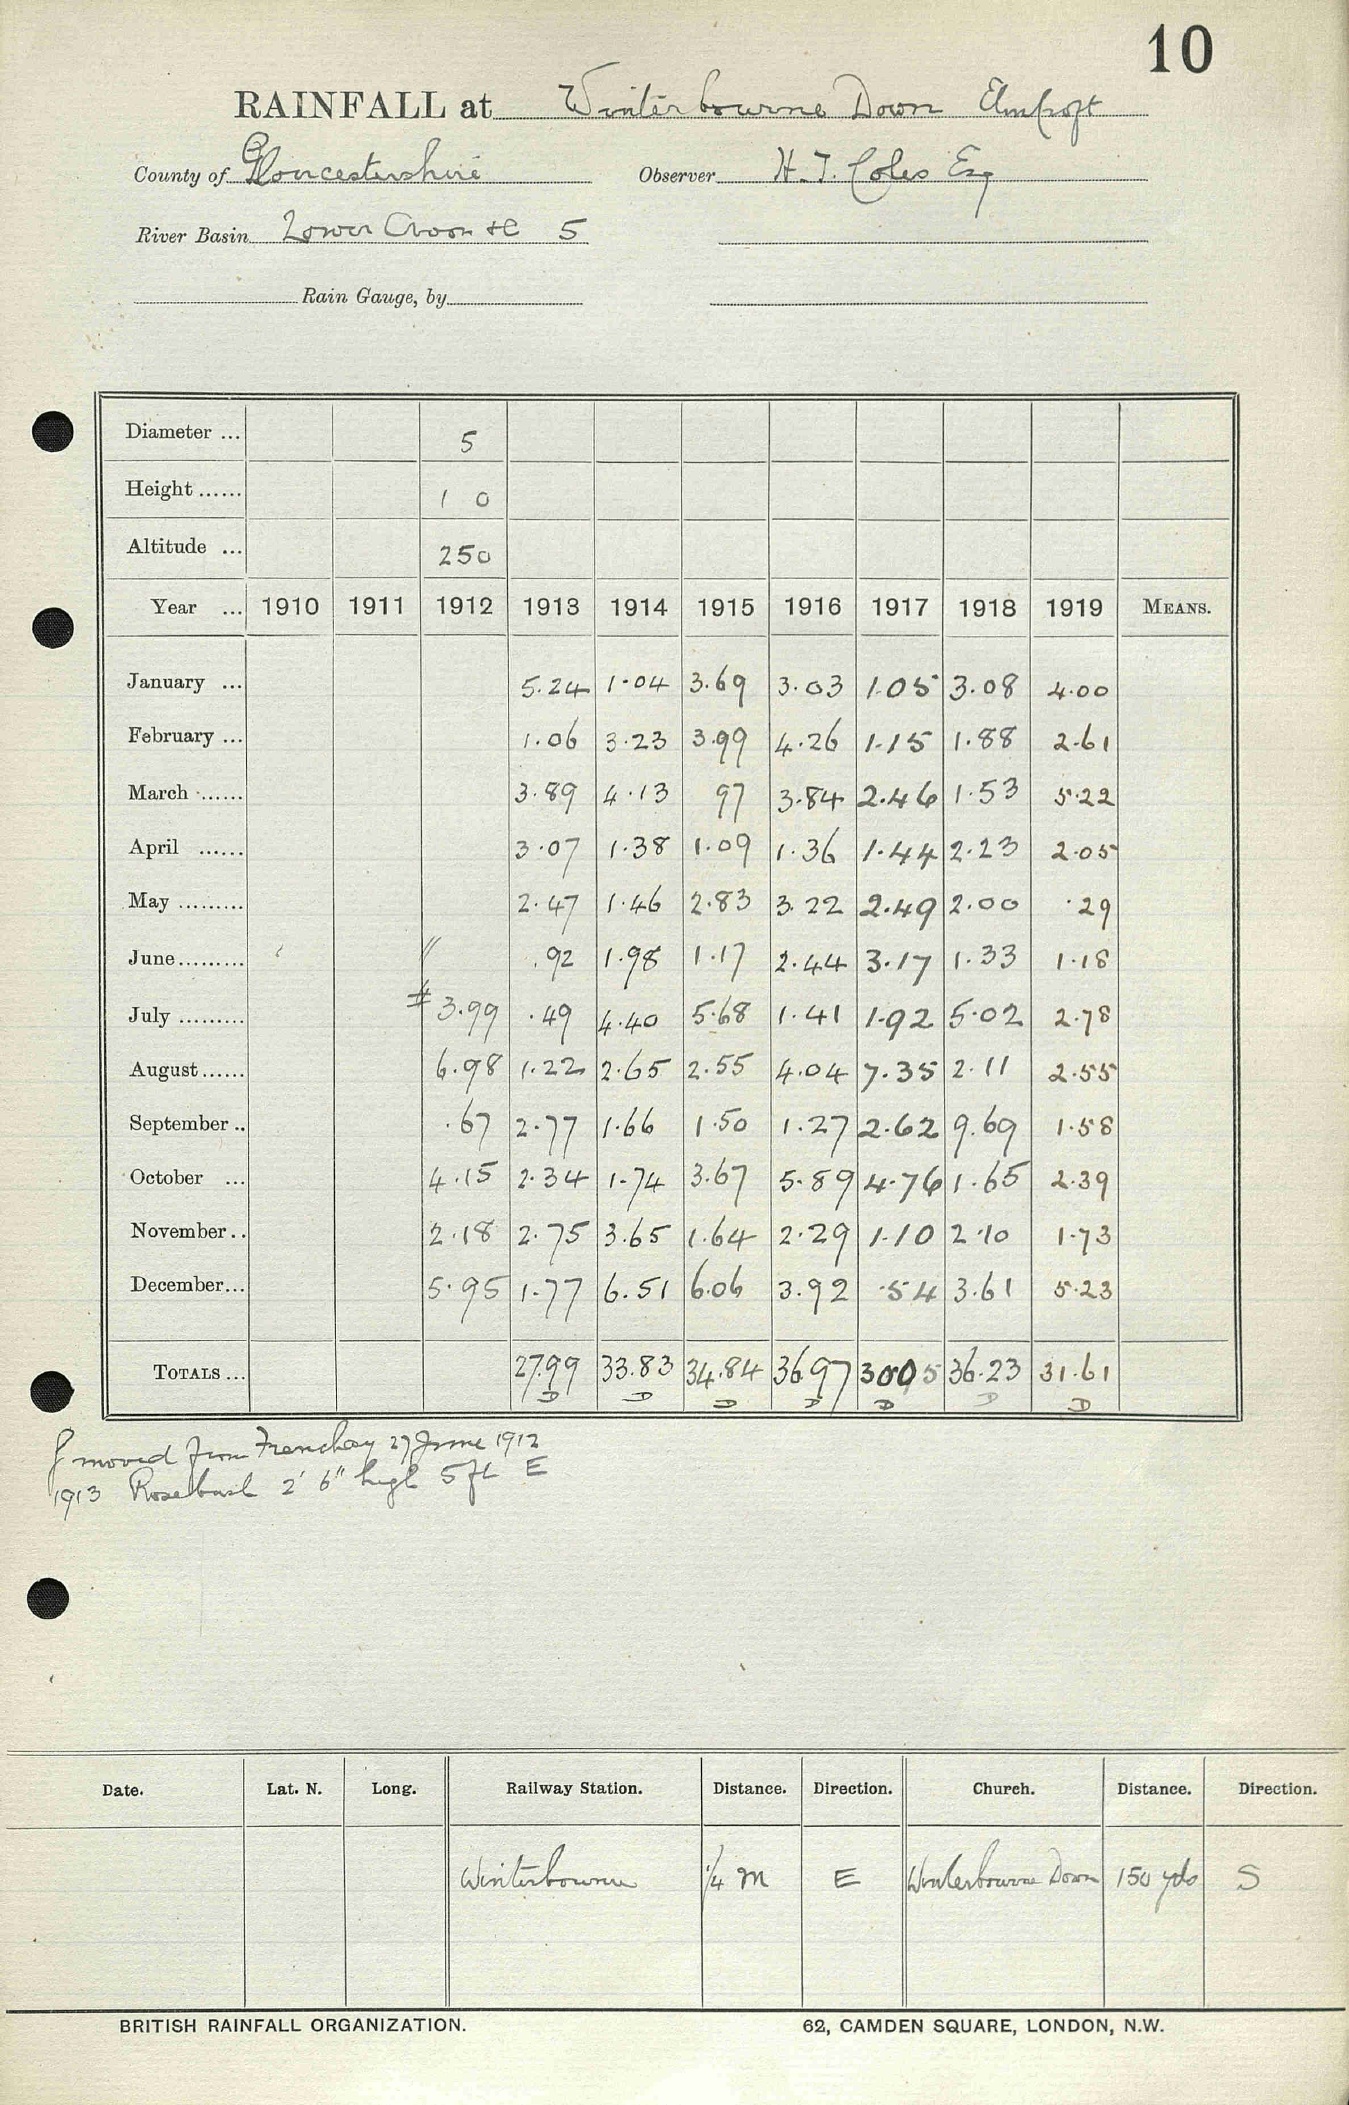 10
RAINFALL at Winterbourne Down Elmcroft
County of Gloucestershire Observer H. T. Coles Esq
River Basin Lower Avon &c 5
Rain Gauge, by
Diameter ... 5
Height ...... 1 0
Altitude ... 250
Year ... 1910 1911 1912 1913 1914 1915 1916 1917 1918 1919 MEANS.
January ... 5.24 1.04 3.69 3.03 1.05 3.08 4.00
February ... 1.06 3.23 3.99 4.26 1.15 1.88 2.61
March ...... 3.89 4.13 97 3.84 2.46 1.53 5.22
April ...... 3.07 1.38 1.09 1.36 1.44 2.23 2.05
May ......... 2.47 1.46 2.83 3.22 2.49 2.00 .29
June ......... // .92 1.98 1.17 2.44 3.17 1.33 1.18
July ......... # 3.99 .49 4.40 5.68 1.41 1.92 5.02 2.78
August ...... 6.98 1.22 2.65 2.55 4.04 7.35 2.11 2.55
September .. .67 2.77 1.66 1.50 1.27 2.62 9.69 1.58
October ... 4.15 2.34 1.74 3.67 5.89 4.76 1.65 2.39
November .. 2.18 2.75 3.65 1.64 2.29 1.10 2.10 1.73
December ... 5.95 1.77 6.51 6.06 3.92 .54 3.61 5.23
TOTALS ... 27.99 33.83 34.84 36.97 30.05 36.23 31.61
D D D D D D D
moved from Frenchay 27 June 1912
1913 Rosebush 2' 6" high 5 ft E
Date. Lat. N. Long. Railway Station. Distance. Direction. Church. Distance. Direction.
Winterbourne 1/4 m E Winterbourne Down 150 yds S
BRITISH RAINFALL ORGANIZATION. 62, CAMDEN SQUARE, LONDON, N.W.